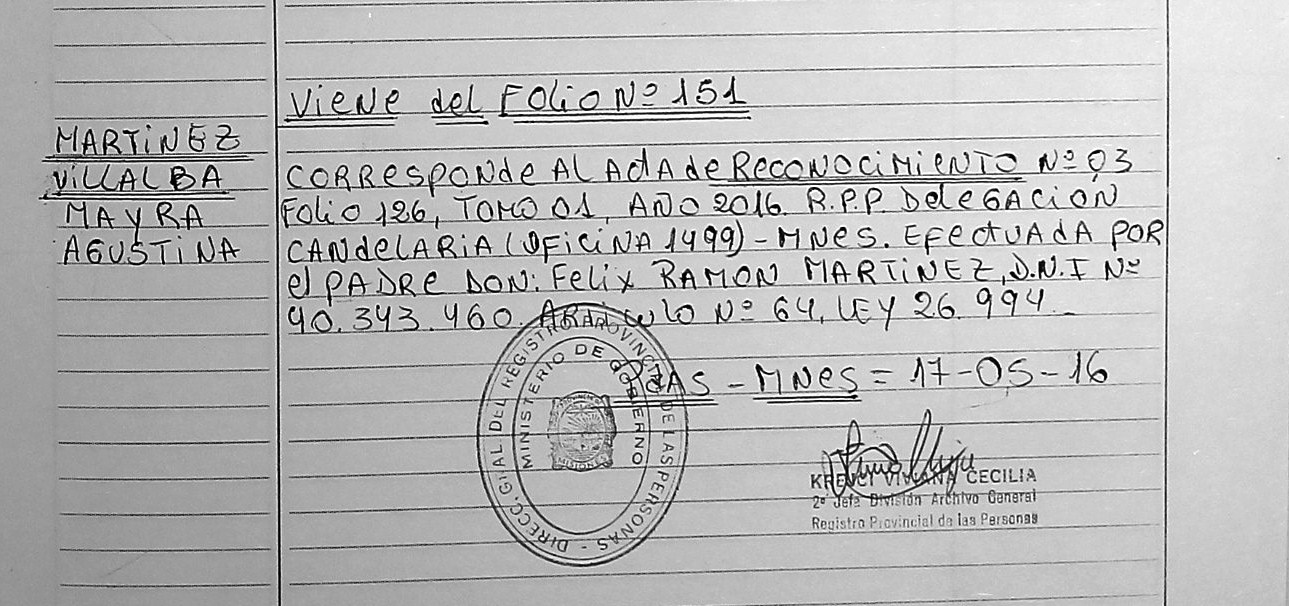 Viene del Folio Nº 151
MARTINEZ
VILLALBA
MAYRA
AGUSTINA
CORResponde Al Acta de Reconocimiento Nº 03
Folio 126, Tomo 01, Año 2016. R.P.P. Delegacion
Candelaria (Oficina 1499) - Mnes. Efectuada por
el padre Don: Felix Ramon Martinez, D.N.I Nº
40.343.460. Articulo Nº 64, Ley 26.994.
Pdas - Mnes = 17-05-16
DIRECC. GRAL DEL REGISTRO PROVINCIAL DE LAS PERSONAS
MINISTERIO DE GOBIERNO
MISIONES
VIVIANA CECILIA
2º Jefe División Archivo General
Registro Provincial de las Personas